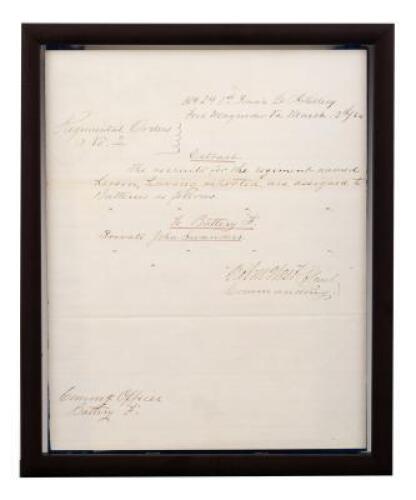 Hd Qrs 1st Penn'a Lt Artillery
Fort Magruder Va March
Regimental Orders
No
Extract
The recruits for the regiment named
hereon, having reported, are assigned to
Batteries as follows
" " " "
To Battery F.
Private John Swanders
" " "
Commanding
Comm'g Officer
Battery F.